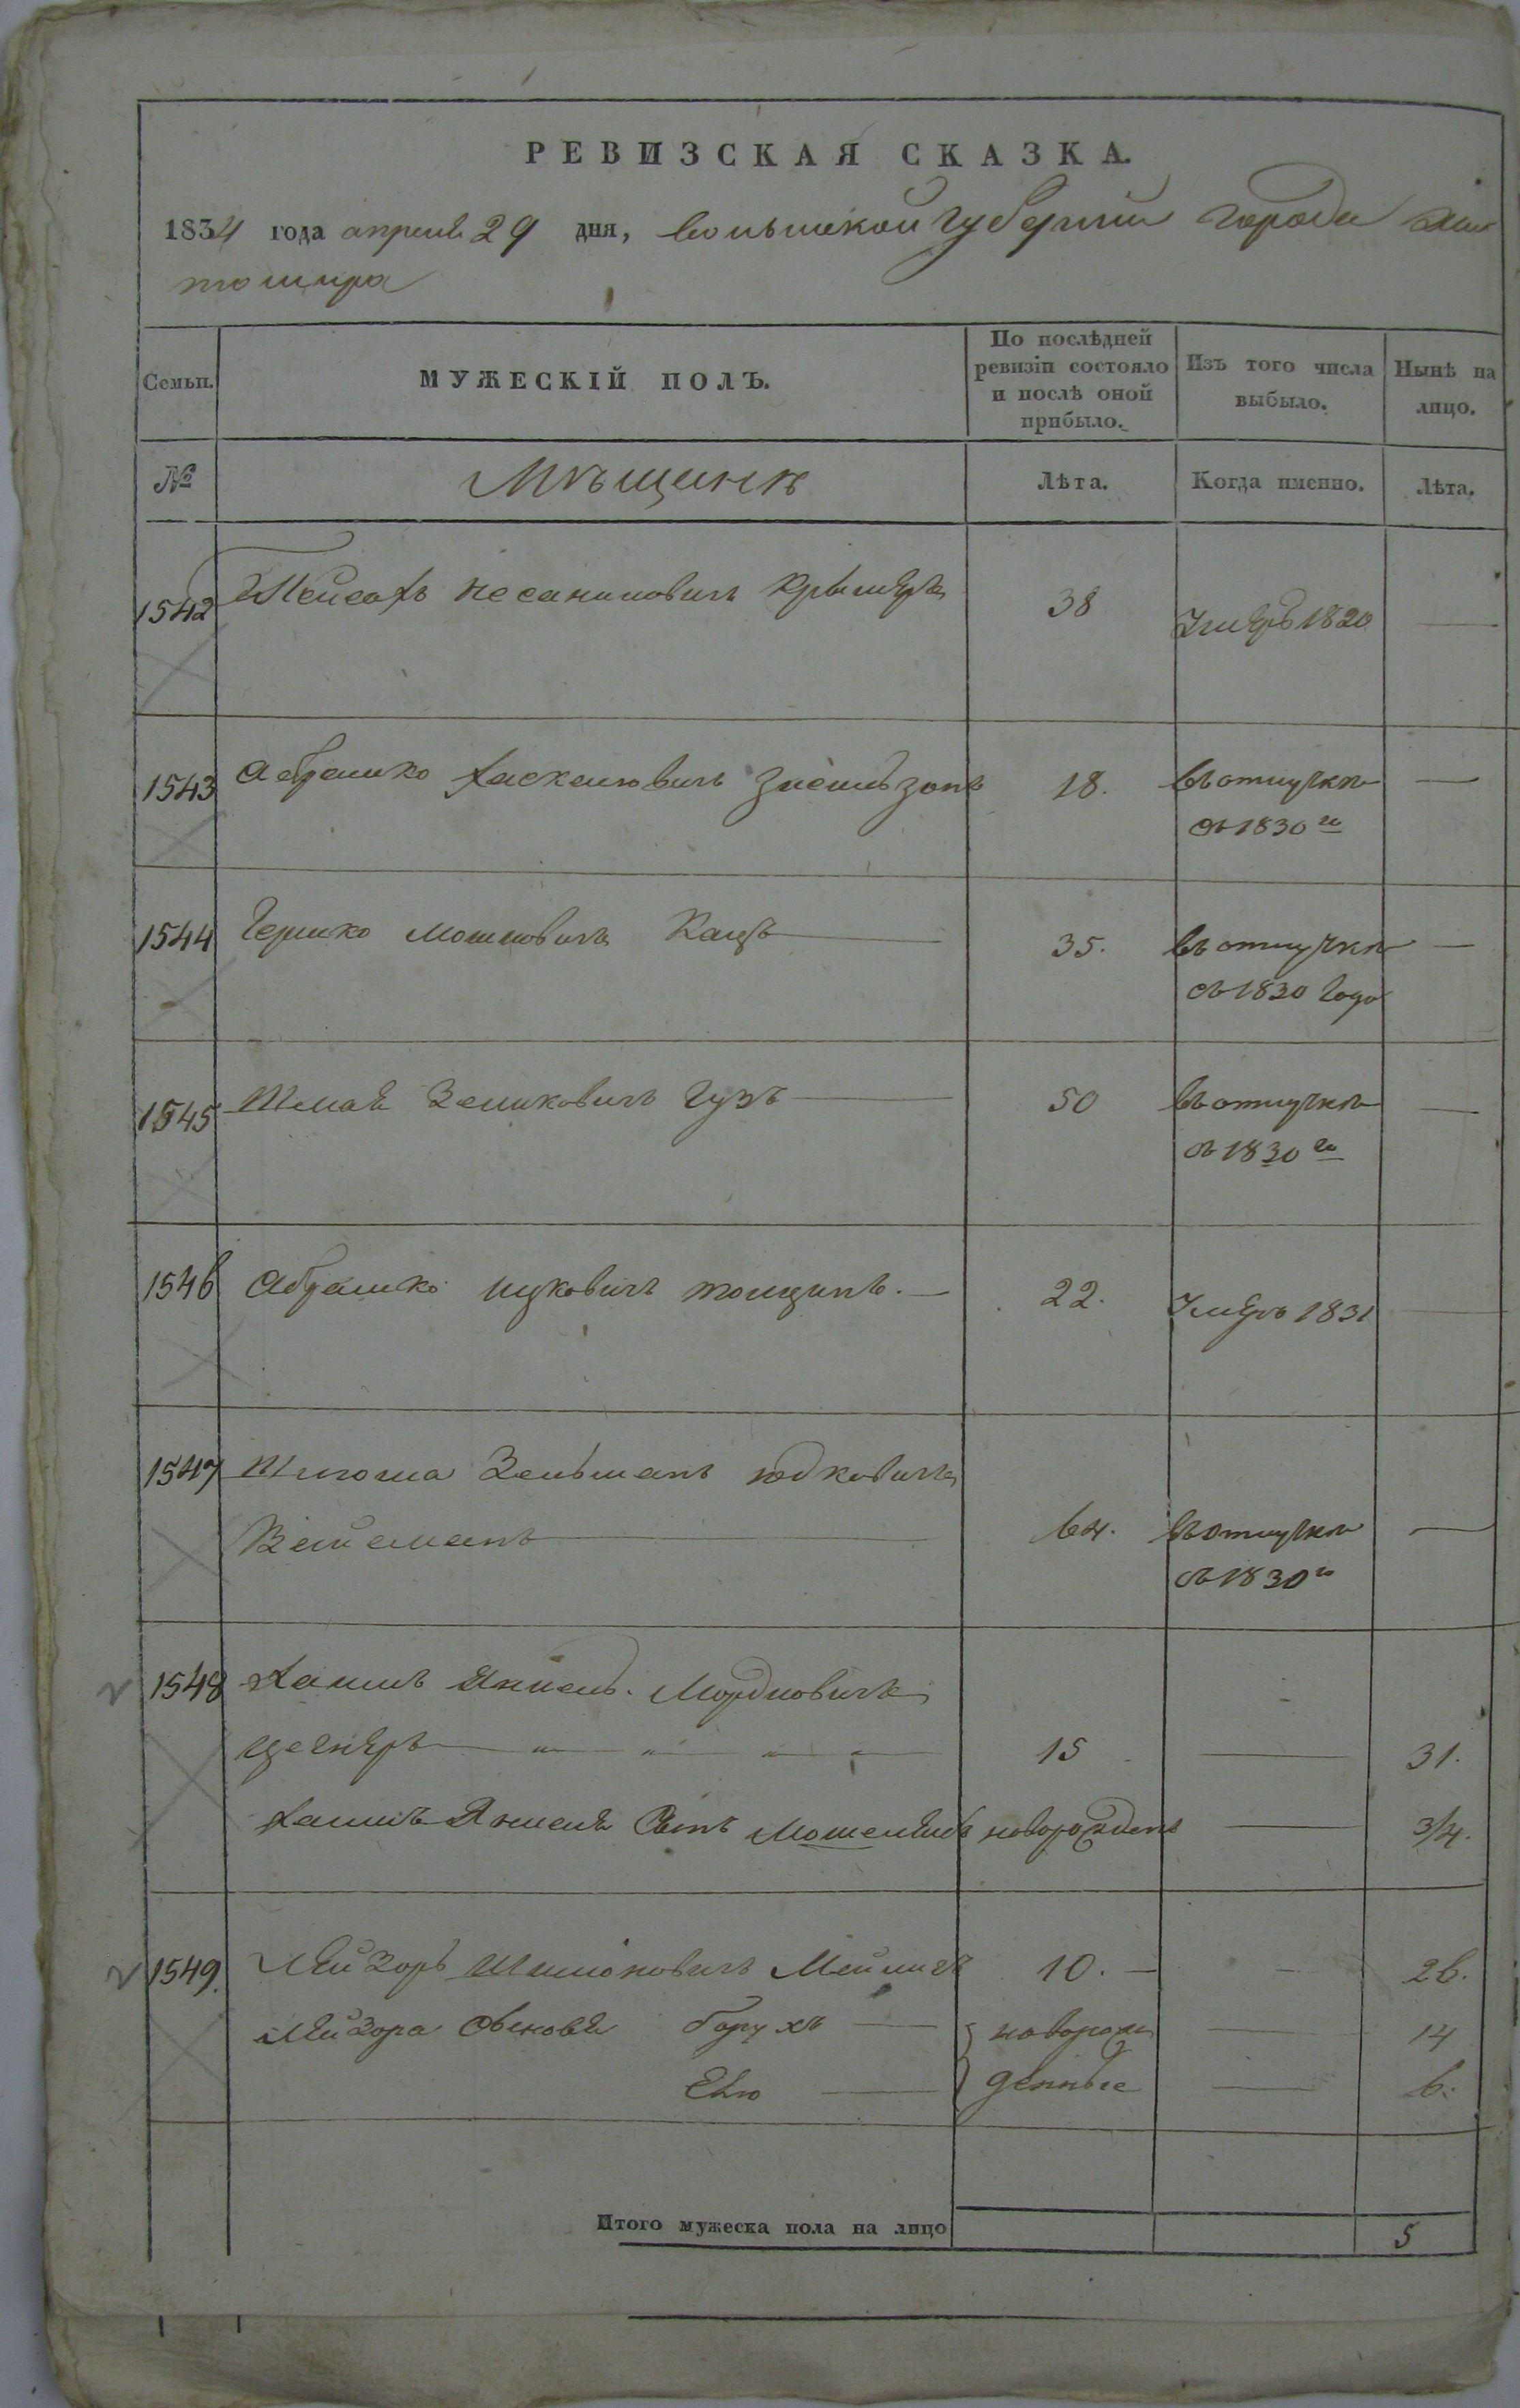 РЕВИЗСКАЯ СКАЗКА.
1834 года апреля 29 дня, Волынской губернии города Жи
томира
Семьи.
МУЖЕСКІЙ ПОЛЪ.
По послѣдней ревизіи состояло и послѣ оной прибыло.
Изъ того числа выбыло.
Нынѣ на лицо.
№
Мѣщанѣ
Лѣта.
Когда именно.
Лѣта.
1542 Пейсахъ 38 Умеръ 1820 —
1543 Абрамко Хаскелювичъ 18. въ отлучкѣ —
съ 1830 го
1544 Гершко Мошковичъ Кацъ — 35. въ отлучкѣ —
съ 1830 года
1545 Шмая Зеликовичъ Гузъ — 50 въ отлучкѣ —
съ 1830 го
1546 Абрамко Ицковичъ 22. Умеръ 1831 —
1547 Шліома Зельманъ Юдковичъ
Вейсманъ — 64. въ отлучкѣ —
съ 1830 го
1548 Хаимъ Янкель Мордковичъ
— " — " — " — " — 15 — 31.
Хаимъ Янкеля Сынъ новорожденъ — 3/4.
1549. Лейзоръ Шимоновичъ 10. — — 26.
Лейзора Сыновья Борухъ — новорож — 14
— денные — 6.
Итого мужеска пола на лицо 5